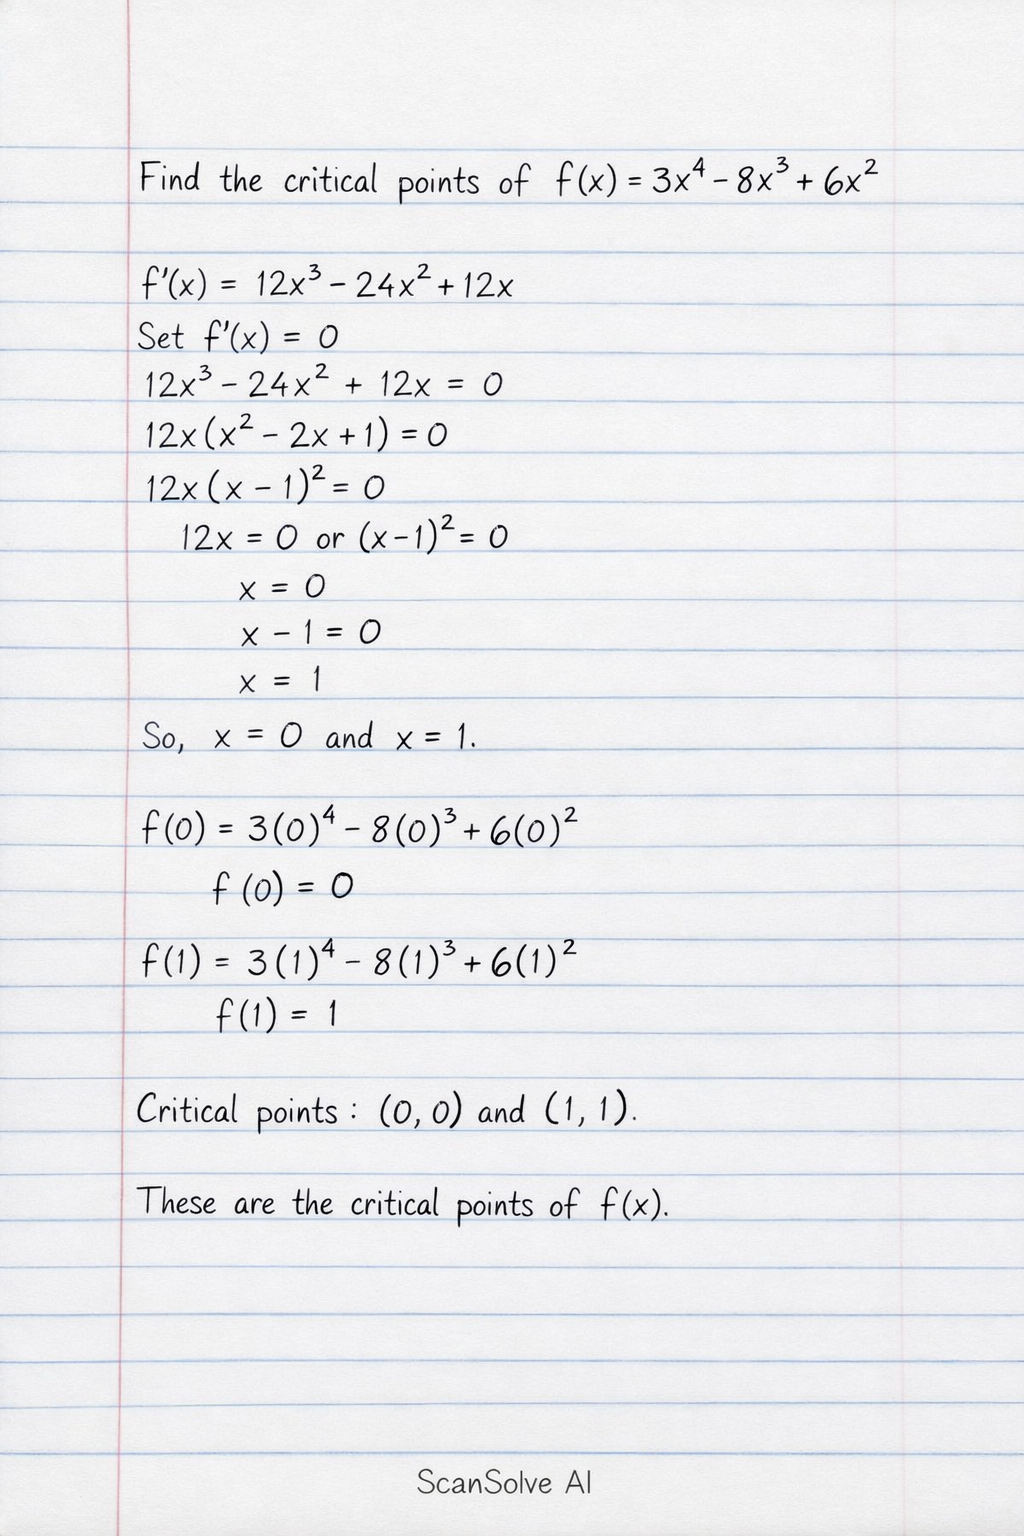 Find the critical points of f(x) = 3x⁴ - 8x³ + 6x²
f'(x) = 12x³ - 24x² + 12x
Set f'(x) = 0
12x³ - 24x² + 12x = 0
12x(x² - 2x + 1) = 0
12x(x - 1)² = 0
12x = 0 or (x-1)² = 0
x = 0
x - 1 = 0
x = 1
So, x = 0 and x = 1.
f(0) = 3(0)⁴ - 8(0)³ + 6(0)²
f(0) = 0
f(1) = 3(1)⁴ - 8(1)³ + 6(1)²
f(1) = 1
Critical points: (0, 0) and (1, 1).
These are the critical points of f(x).
ScanSolve AI